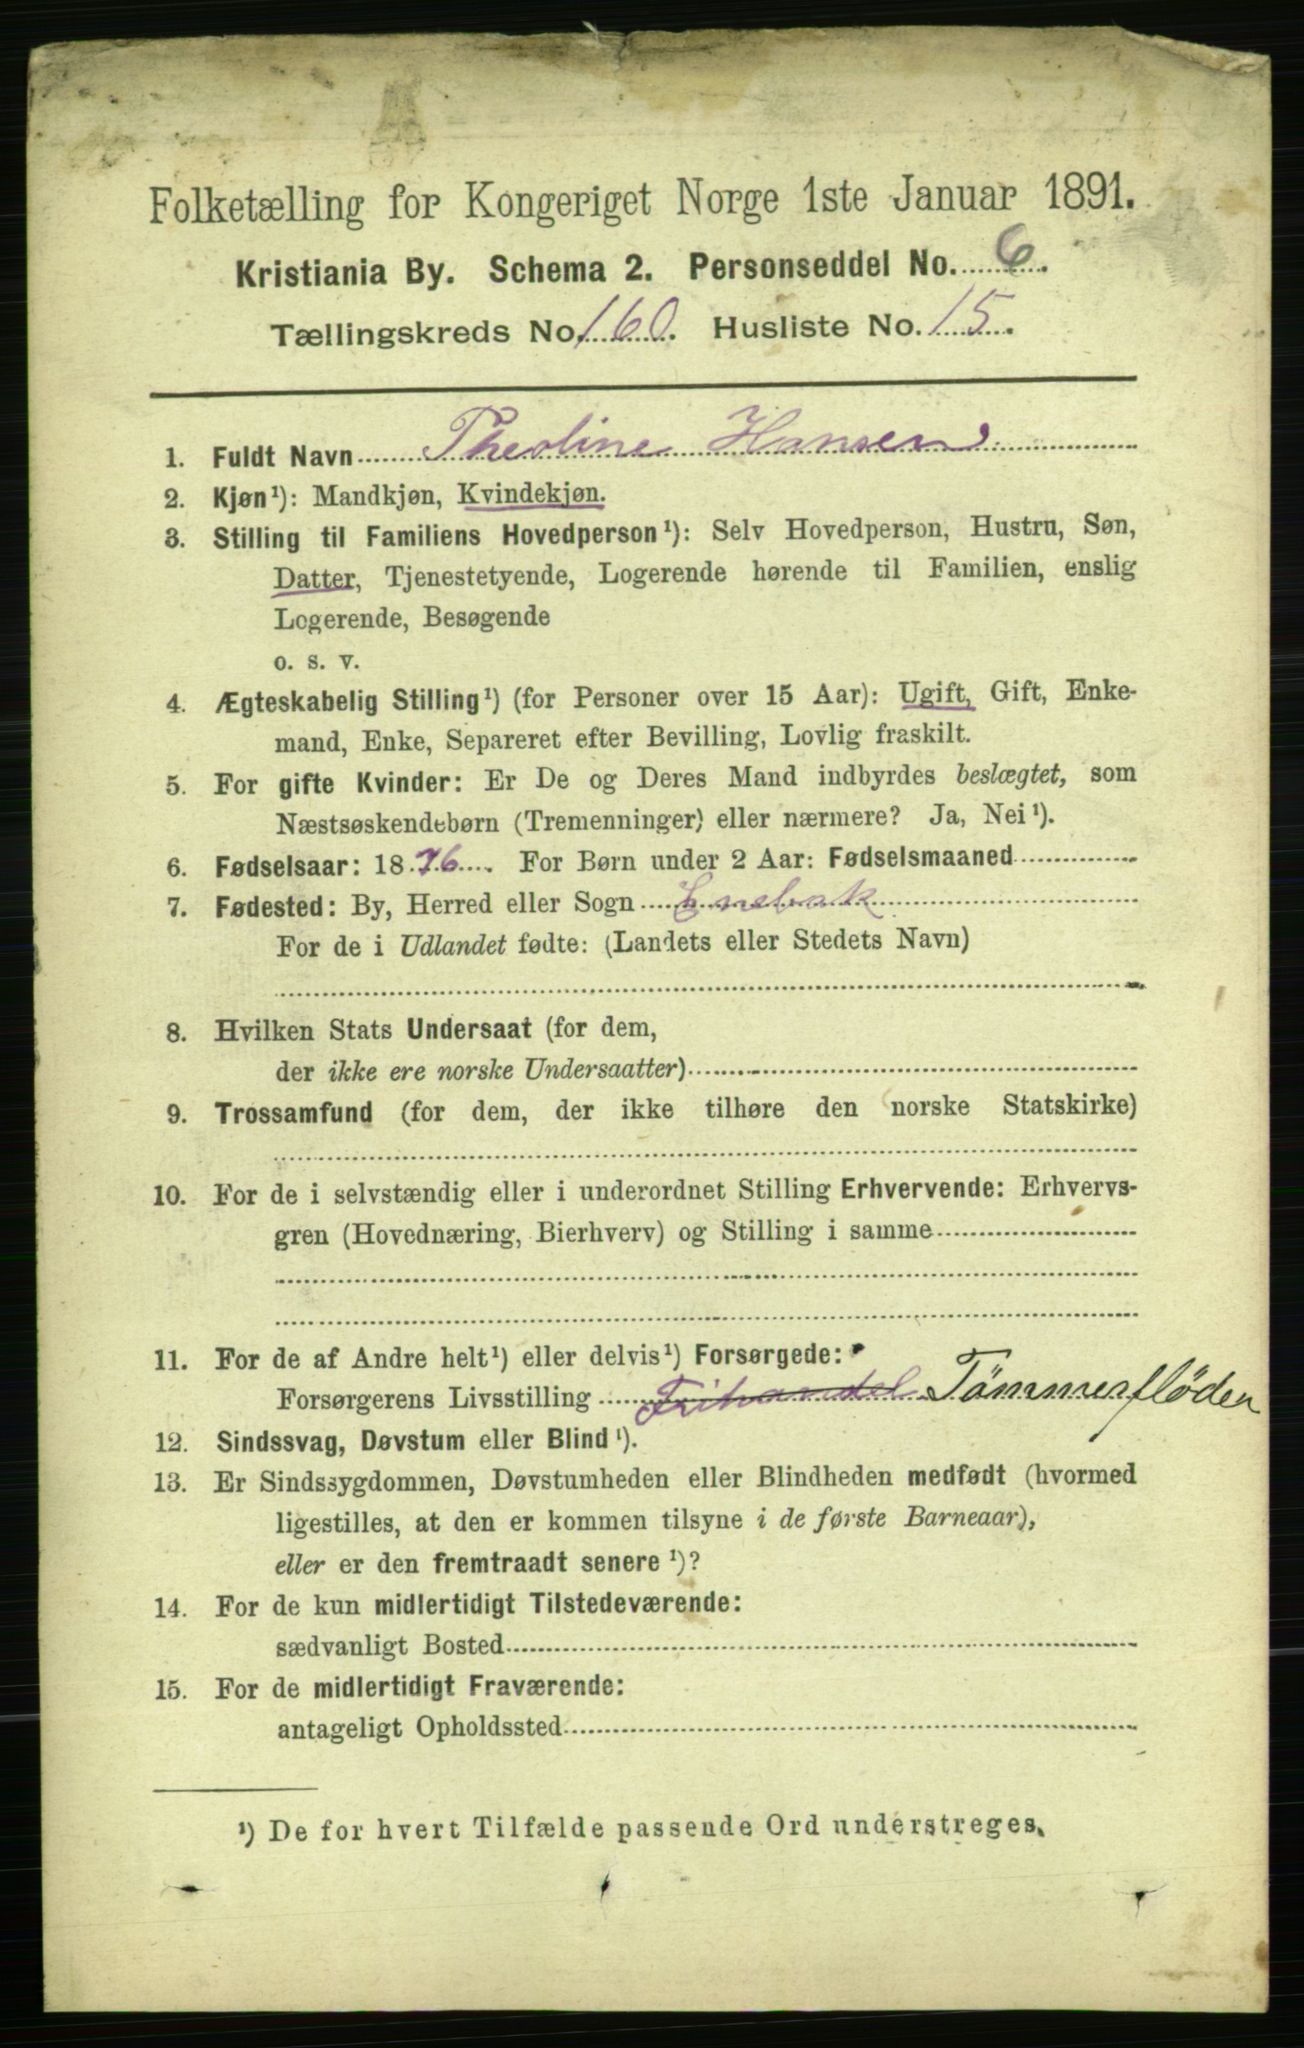 Folketælling for Kongeriget Norge 1ste Januar 1891.
Kristiania By. Schema 2. Personseddel No. 6.
Tællingskreds No. 160. Husliste No. 15.
1. Fuldt Navn Theoline Hansen
2. Kjøn¹): Mandkjøn, Kvindekjøn.
3. Stilling til Familiens Hovedperson¹): Selv Hovedperson, Hustru, Søn,
Datter, Tjenestetyende, Logerende hørende til Familien, enslig
Logerende, Besøgende
o. s. v.
4. Ægteskabelig Stilling¹) (for Personer over 15 Aar): Ugift, Gift, Enke-
mand, Enke, Separeret efter Bevilling, Lovlig fraskilt.
5. For gifte Kvinder: Er De og Deres Mand indbyrdes beslægtet, som
Næstsøskendebørn (Tremenninger) eller nærmere? Ja, Nei¹).
6. Fødselsaar: 1876. For Børn under 2 Aar: Fødselsmaaned
7. Fødested: By, Herred eller Sogn Enebak
For de i Udlandet fødte: (Landets eller Stedets Navn)
8. Hvilken Stats Undersaat (for dem,
der ikke ere norske Undersaatter)
9. Trossamfund (for dem, der ikke tilhøre den norske Statskirke)
10. For de i selvstændig eller i underordnet Stilling Erhvervende: Erhvervs-
gren (Hovednæring, Bierhverv) og Stilling i samme
11. For de af Andre helt¹) eller delvis¹) Forsørgede:
Forsørgerens Livsstilling Frihandel Tömmerflöder
12. Sindssvag, Døvstum eller Blind¹).
13. Er Sindssygdommen, Døvstumheden eller Blindheden medfødt (hvormed
ligestilles, at den er kommen tilsyne i de første Barneaar),
eller er den fremtraadt senere¹)?
14. For de kun midlertidigt Tilstedeværende:
sædvanligt Bosted
15. For de midlertidigt Fraværende:
antageligt Opholdssted
¹) De for hvert Tilfælde passende Ord understreges.